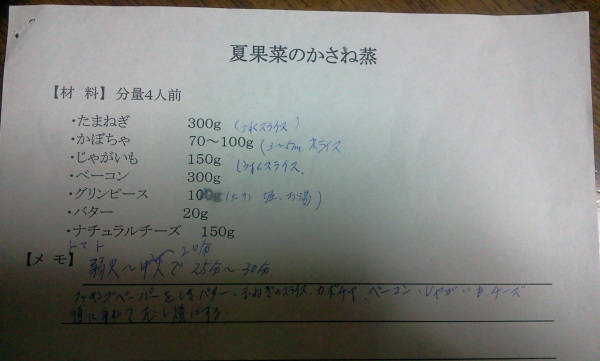 夏果菜のかさね蒸
【材 料】分量4人前
・たまねぎ 300g (うすくスライス)
・かぼちゃ 70～100g (3～5㎜ スライス
・じゃがいも 150g (うすくスライス
・ベーコン 300g
・グリンピース 100g
・バター 20g
・ナチュラルチーズ 150g
トマト
20分
【メ モ】弱火～中火で25分～30分
クッキングペーパーをしきバター、玉ねぎのスライス、カボチャ、ベーコン、じゃがいも、チーズ
順に重ねてむし焼にする。